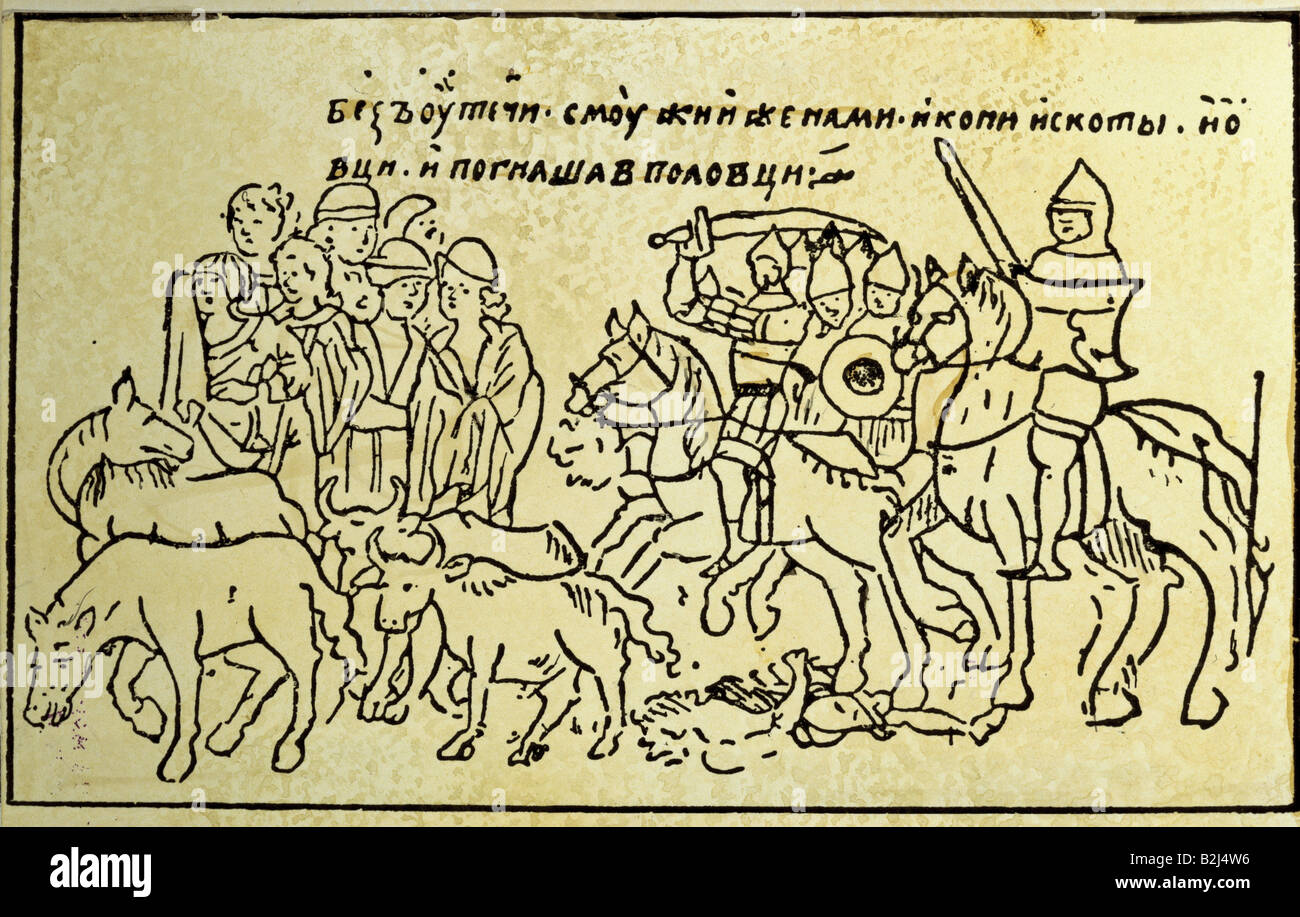 безъоутечи · смоужийженами · икони искоты . ио
вци . и погнашавполовци :~
alamy
a
a
a
alamy
Image ID: B2J4W6
www.alamy.com